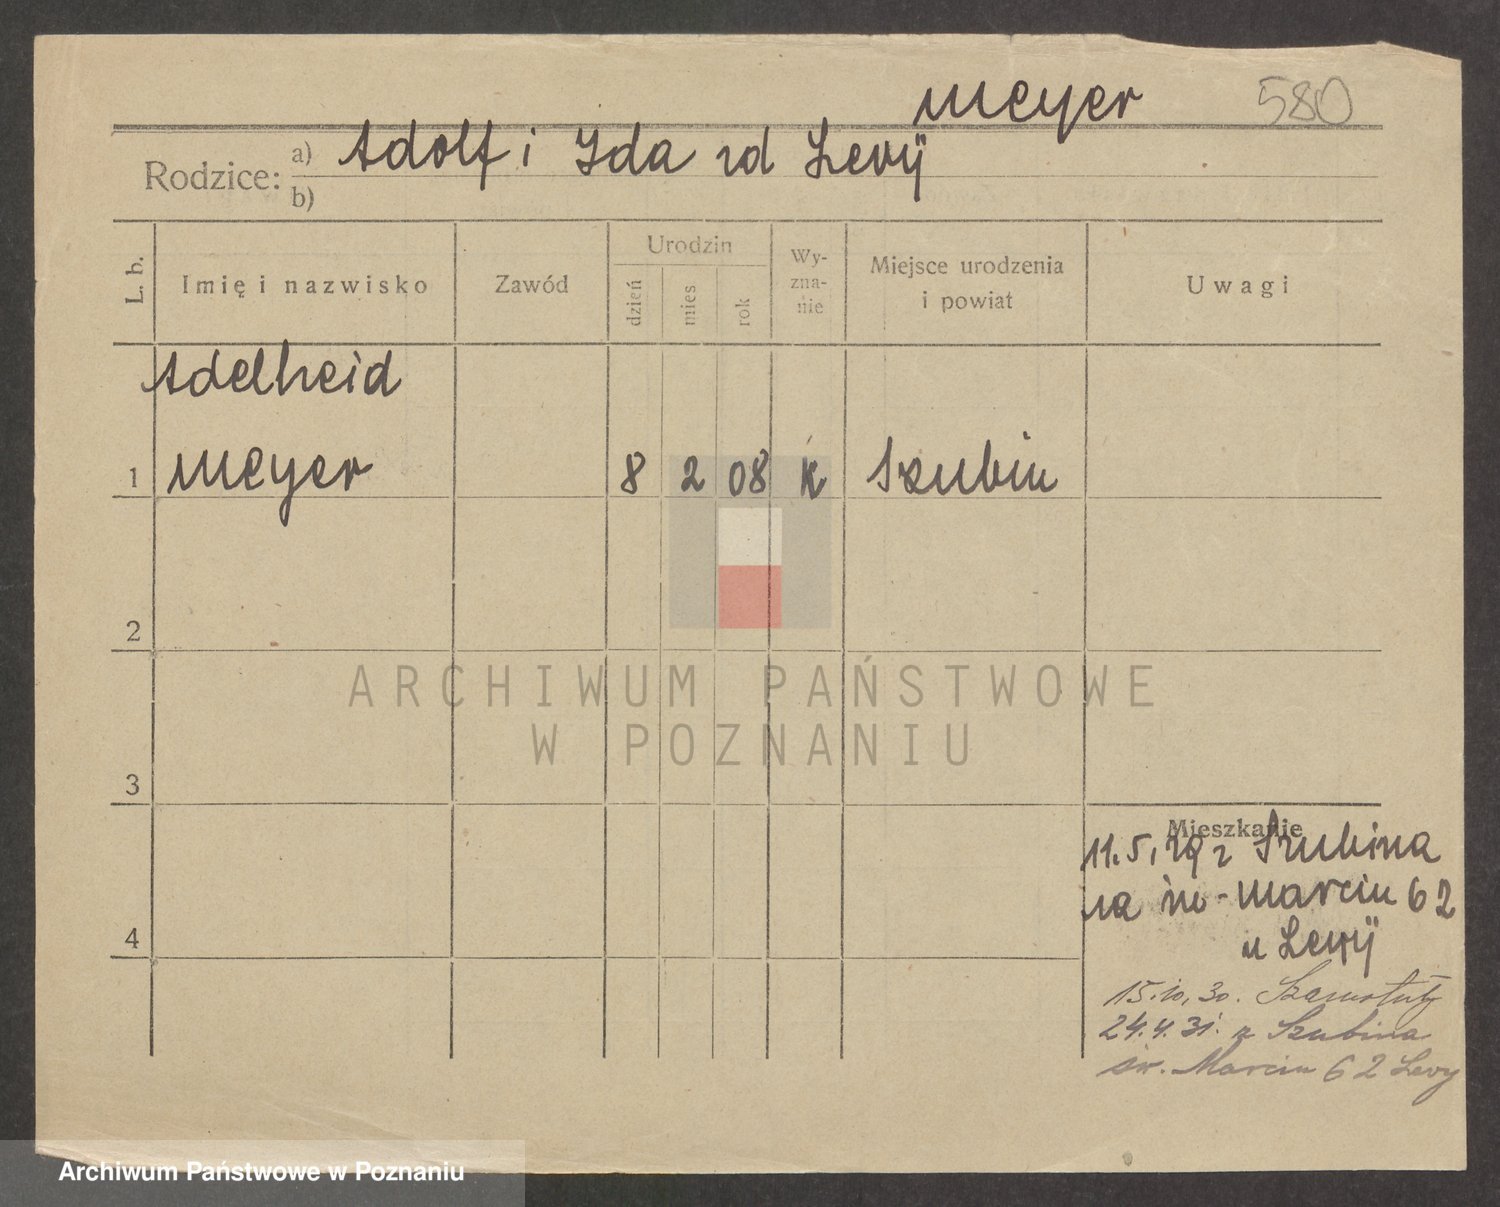 Meyer 580
Rodzice: a) Adolf i Ida zd Levÿ
b)
L. b. Imię i nazwisko Zawód Urodzin dzień mies rok Wy-zna-nie Miejsce urodzenia i powiat Uwagi
Adelheid
1 Meyer 8 2 08 K Szubin
2
ARCHIWUM PAŃSTWOWE
W POZNANIU
3
Mieszkanie
11.5.29 z Szubina
na św. Marcin 62
u Lewÿ
4
15.10.30. Szamotuły
24.4.31. z Szubina
św. Marcin 62 Levy
Archiwum Państwowe w Poznaniu